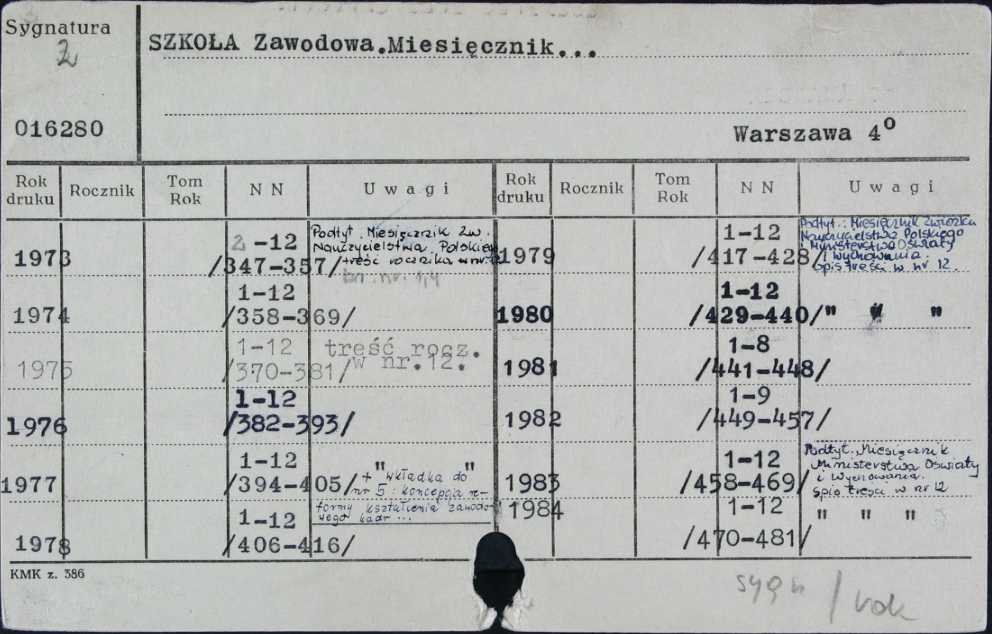 Sygnatura
2
SZKOŁA Zawodowa.Miesięcznik...
016280
Warszawa 4°
Rok druku Rocznik Tom Rok NN Uwagi Rok druku Rocznik Tom Rok NN Uwagi
1973 2-12
/347-357/
Podtyt. Miesięcznik Zw.
Nauczycielstwa Polskiego
treść rocznika w nr 12
br. nr. 1,4
1974 1-12
/358-369/
1975 1-12 treść rocz.
/370-381/ w nr.12.
1976 1-12
/382-393/
1977 1-12
/394-405/
+ "wkładka do"
nr 5: koncepcja re-
formy kształcenia zawodo-
wego kadr ...
1978 1-12
/406-416/
1979 1-12
/417-428/
Podtyt.: Miesięcznik Związku
Nauczycielstwa Polskiego
i Ministerstwa Oświaty
i Wychowania.
Spis treści w nr 12.
1980 1-12
/429-440/ " " "
1981 1-8
/441-448/
1982 1-9
/449-457/
1983 1-12
/458-469/
Podtyt. Miesięcznik
Ministerstwa Oświaty
i Wychowania.
Spis treści w nr 12
1984 1-12
/470-481/ " " "
KMK z. 586
sygn / rok